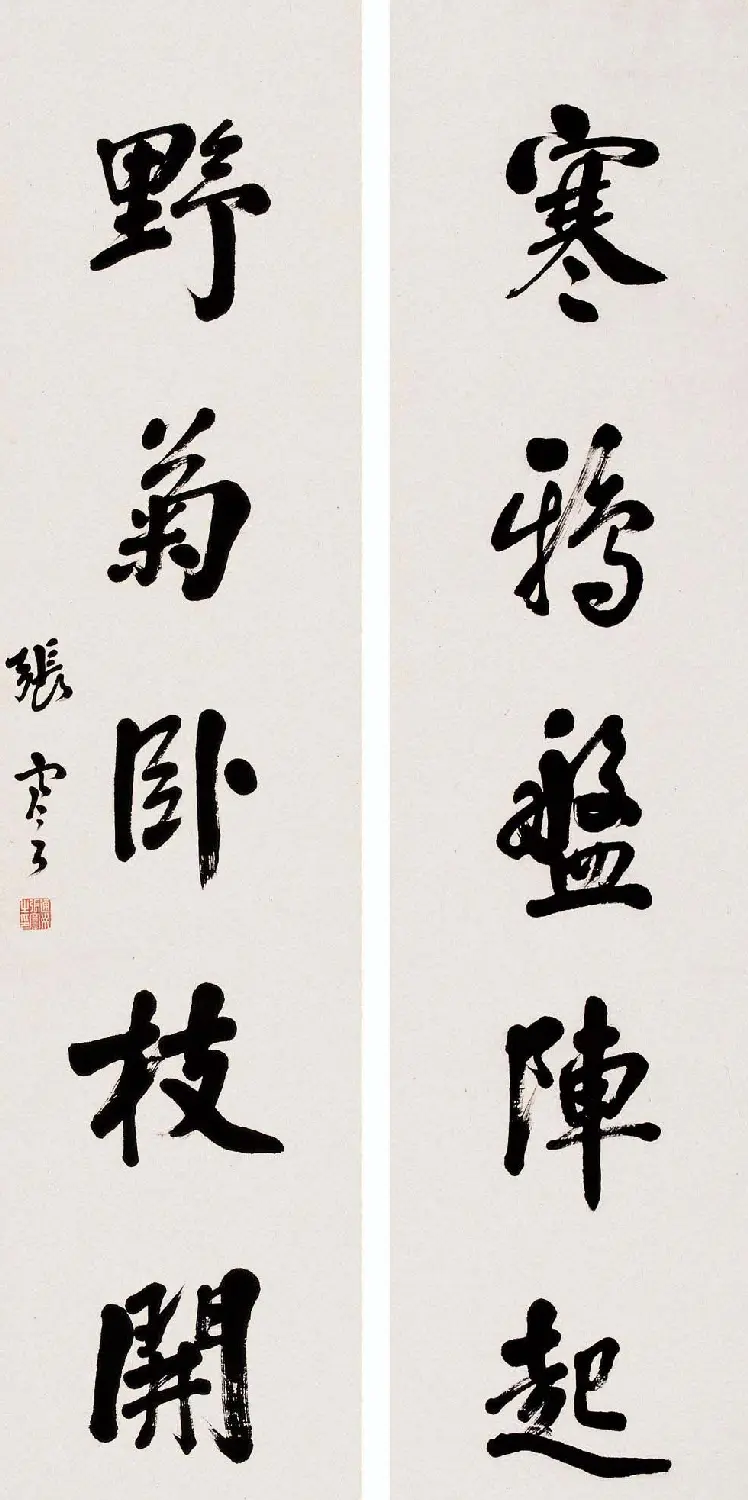 寒鴉盤陣起
野菊臥枝開
張騫